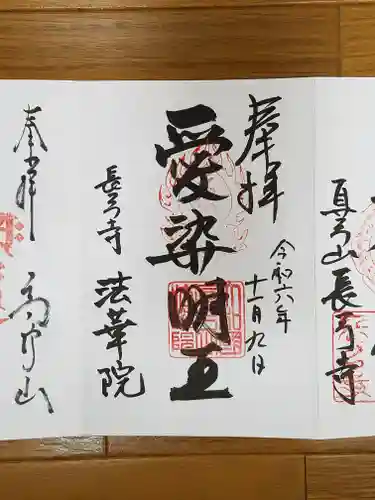 真弓山長弓寺
奉拝
令和六年
十一月九日
愛染明王
長弓寺
法華院
奉拝
山